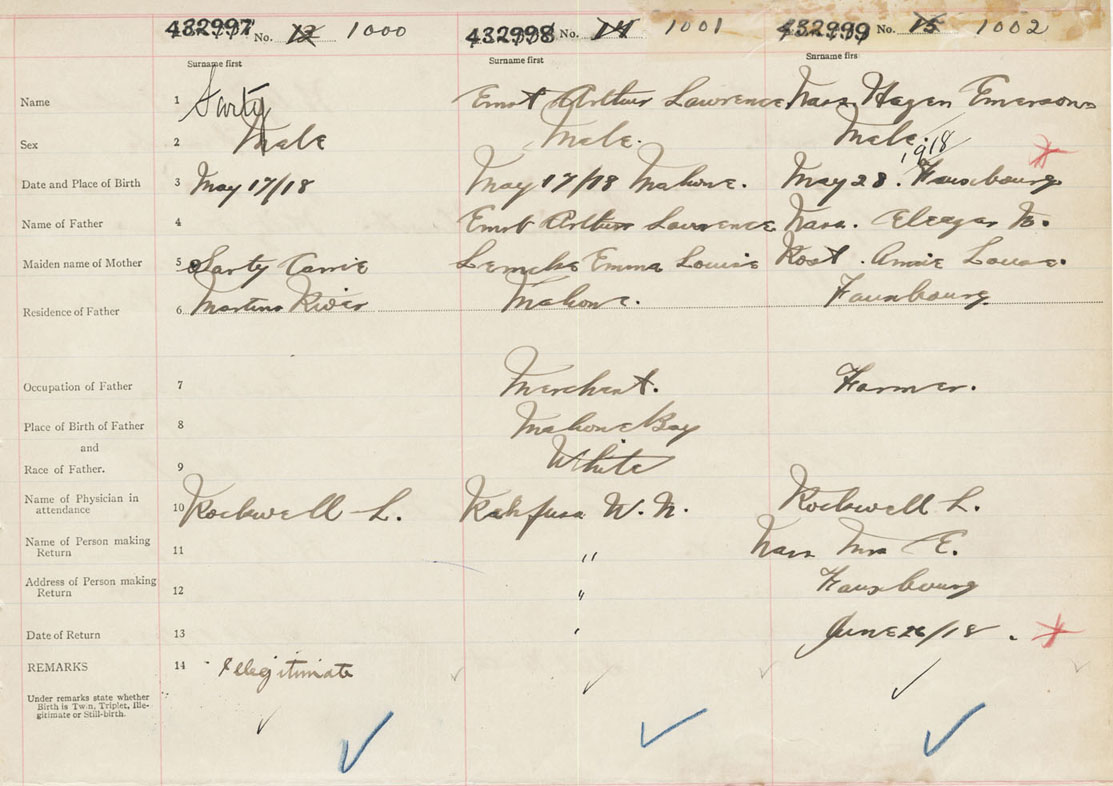 432997 No. 13 1000 432998 No. 14 1001 432999 No. 15 1002
Surname first Surname first Surname firs
Name 1 Sarty Ernst Arthur Lawrence Nass Hagen Emerson
Sex 2 Male Male. Male.
1918
Date and Place of Birth 3 May 17/18 May 17/18 Mahone. May 28. Fauxbourg
Name of Father 4 Ernst Arthur Lawrence Nass. N.
Maiden name of Mother 5 Sarty Carrie Lemcke Emma Louise Annie Louise.
Residence of Father 6 Martins River Mahone. Fauxbourg.
Occupation of Father 7 Merchant. Farmer.
Place of Birth of Father 8 Mahone Bay
and
Race of Father. 9 White
Name of Physician in
attendance 10 Rockwell L. W. N. Rockwell L.
Name of Person making
Return 11 " Nass Mrs E.
Address of Person making
Return 12 " Fauxbourg
Date of Return 13 ' June 26/18.
REMARKS 14 Illegitimate
Under remarks state whether
Birth is Twin, Triplet, Ille-
gitimate or Still-birth.